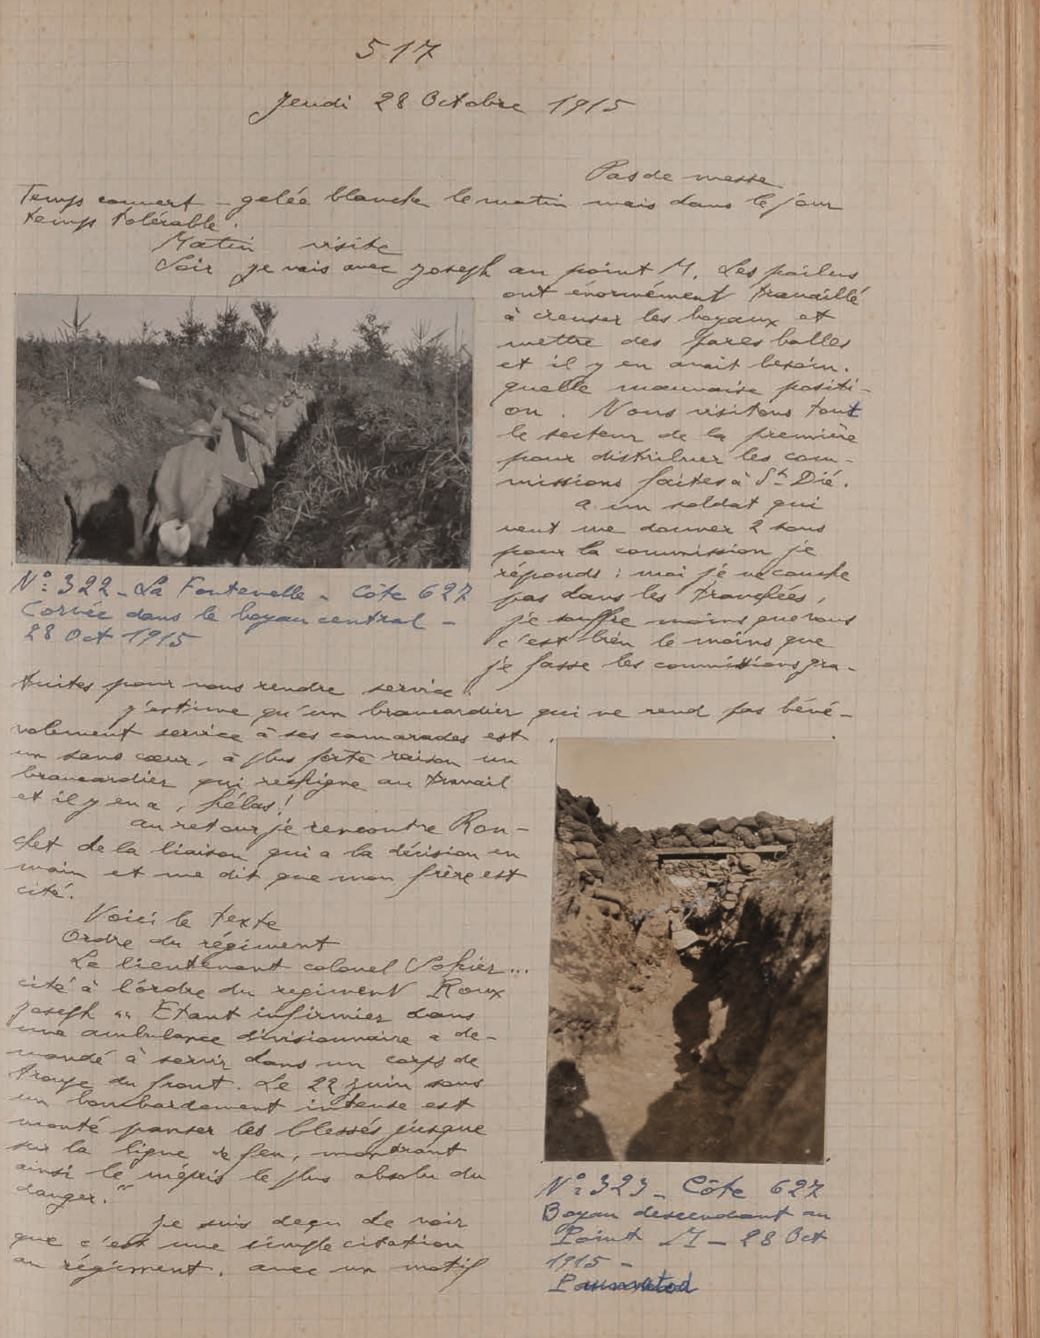 517
Jeudi 28 Octobre 1915
Pas de messe
Temps couvert - gelée blanche le matin mais dans le jour
temps tolérable.
Matin visite
Soir je vais avec Joseph au point M. Les poilus
ont énormément travaillé
à creuser les boyaux et
mettre des pares balles
et il y en avait besoin.
quelle mauvaise positi-
on. Nous visitons tout
le secteur de la première
pour distribuer les com-
missions faites à St Dié.
a un soldat qui
veut me donner 2 sous
pour la commission je
réponds : moi je ne couche
pas dans les tranchées,
je souffre moins que vous
c'est bien le moins que
je fasse les commissions gra-
N°: 322 - La Fontenelle - Côte 627
Corvée dans le boyau central -
28 Oct 1915
tuites pour vous rendre service.
j'estime qu'un brancardier qui ne rend pas béné-
volement service à ses camarades est
un sans cœur, à plus forte raison un
brancardier qui rechigne au travail
et il y en a, hélas!
au retour je rencontre Ron-
chet de la liaison qui a la décision en
main et me dit que mon frère est
cité.
Voici le texte
Ordre du régiment
Le lieutenant colonel ...
cité à l'ordre du regiment Roux
Joseph "" Etant infirmier dans
une ambulance divisionnaire a de-
mandé à servir dans un corps de
troupe du front. Le 22 juin sous
un bombardement intense est
monté panser les blessés jusque
sur la ligne de feu, montrant
ainsi le mépris le plus absolu du
danger.""
Je suis deçu de voir
que c'est une simple citation
au régiment, avec un motif
N°: 323 - Côte 627
Boyau descendant au
Point M - 28 Oct
1915 -